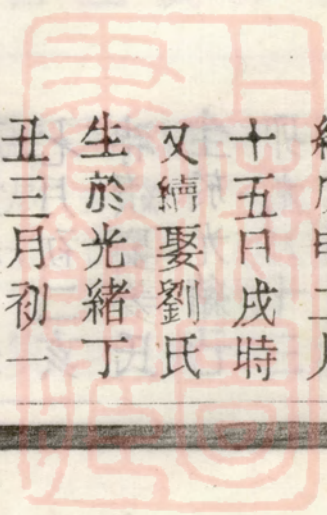 十五日戌時
又續娶劉氏
生於光緒丁
丑三月初一